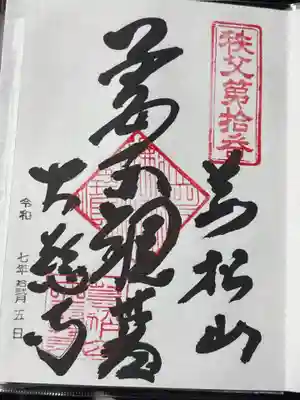 秩父第拾番
萬松山
聖観音
大慈寺
令和
七年 月五日